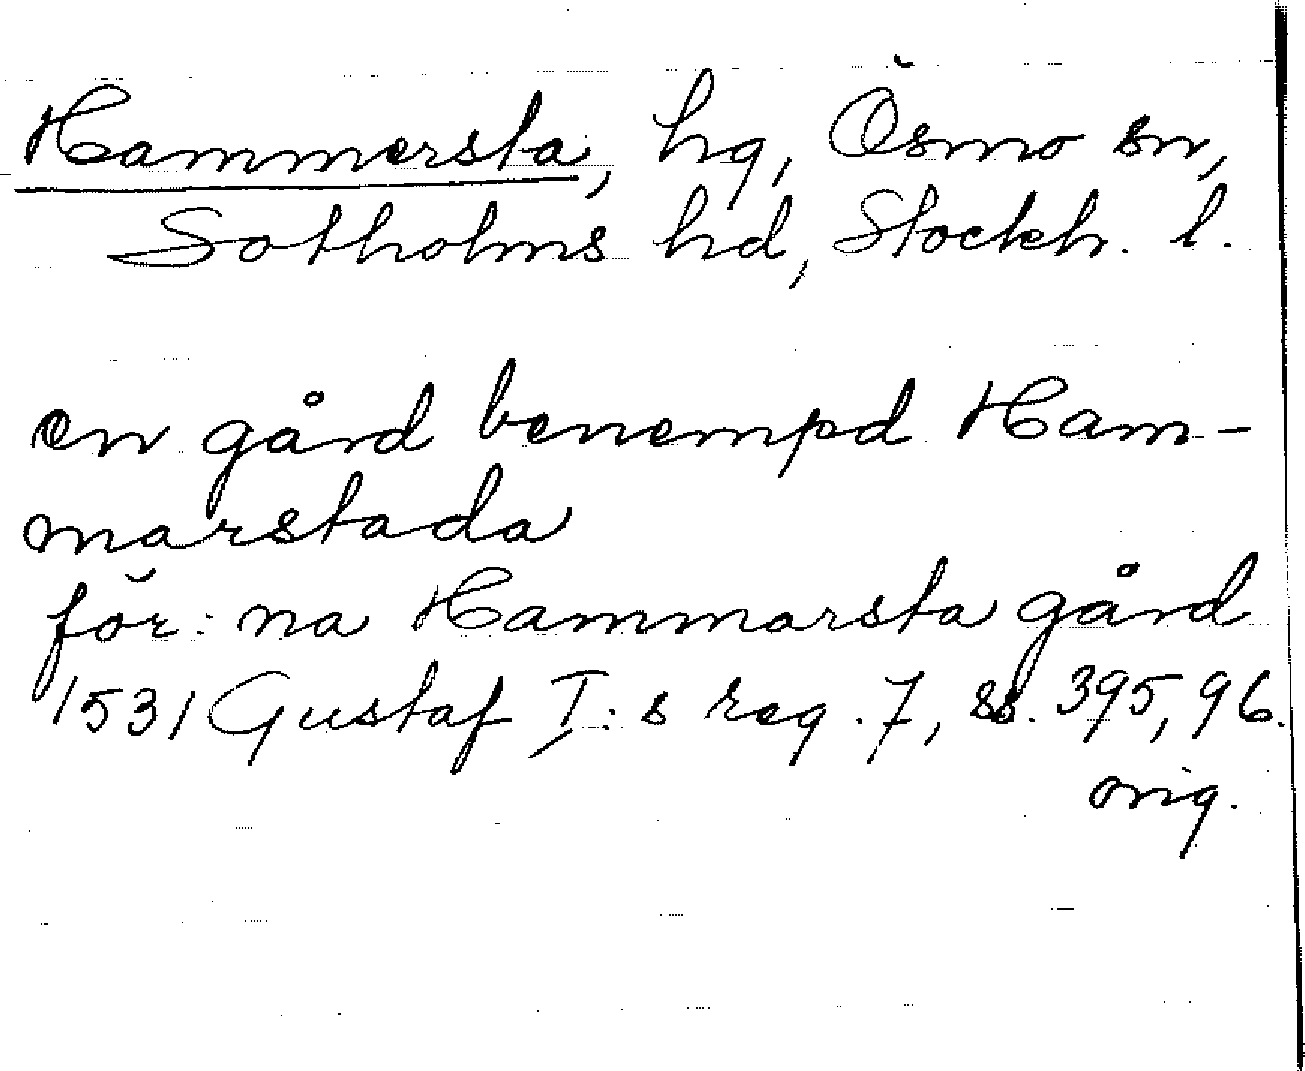 Hammersta, hg, Ösmo sn,
Sotholms hd, Stockh. l.
en gård benempd Ham-
marstada
för: na Hammarsta gård
1531 Gustaf I: s reg. 7, ss. 395, 96.
orig.